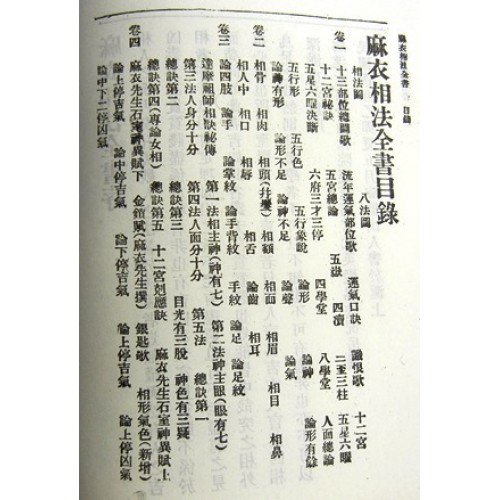 麻衣相法全書 目錄
麻衣相法全書目錄
卷一
相法圖 八法圖
十三部位總圖歌 流年運氣部位歌 運氣口訣 識恨歌 十二宮
十二宮祕訣 五宮總論 五嶽 四瀆 二至三柱 五星六曜
五星六曜決斷 六府三才三停 四學堂 八學堂 人面總論
五行形 五行色 五行象說 論形 論形有餘
論神有形 論形不足 論神不足 論聲 論氣
卷二
相骨 相肉 相頭(井髮) 相額 相面 相眉 相目 相鼻
相人中 相口 相唇 相舌 論齒 相耳
論四肢 論手 論掌紋 論手背紋 手紋 論足 論足紋
卷三
達摩祖師相訣祕傳 第一法相主神(神有七) 第二法神主眼(眼有七)
第三法人身分十分 第四法人面分十分 第五法 總訣第一
總訣第二 總訣第三 目光有三脫 神色有三疑
總訣第四專論女相) 總訣第五 十二宮剋應訣
卷四
麻衣先生石室神異賦下 金鎖賦(麻衣先生撰) 銀匙歌 麻衣先生石室神異賦上
相形氣色(新增)
論上停吉氣 論中停吉氣 論下停吉氣 論上停吉氣 論上停凶氣
論中下二停凶氣